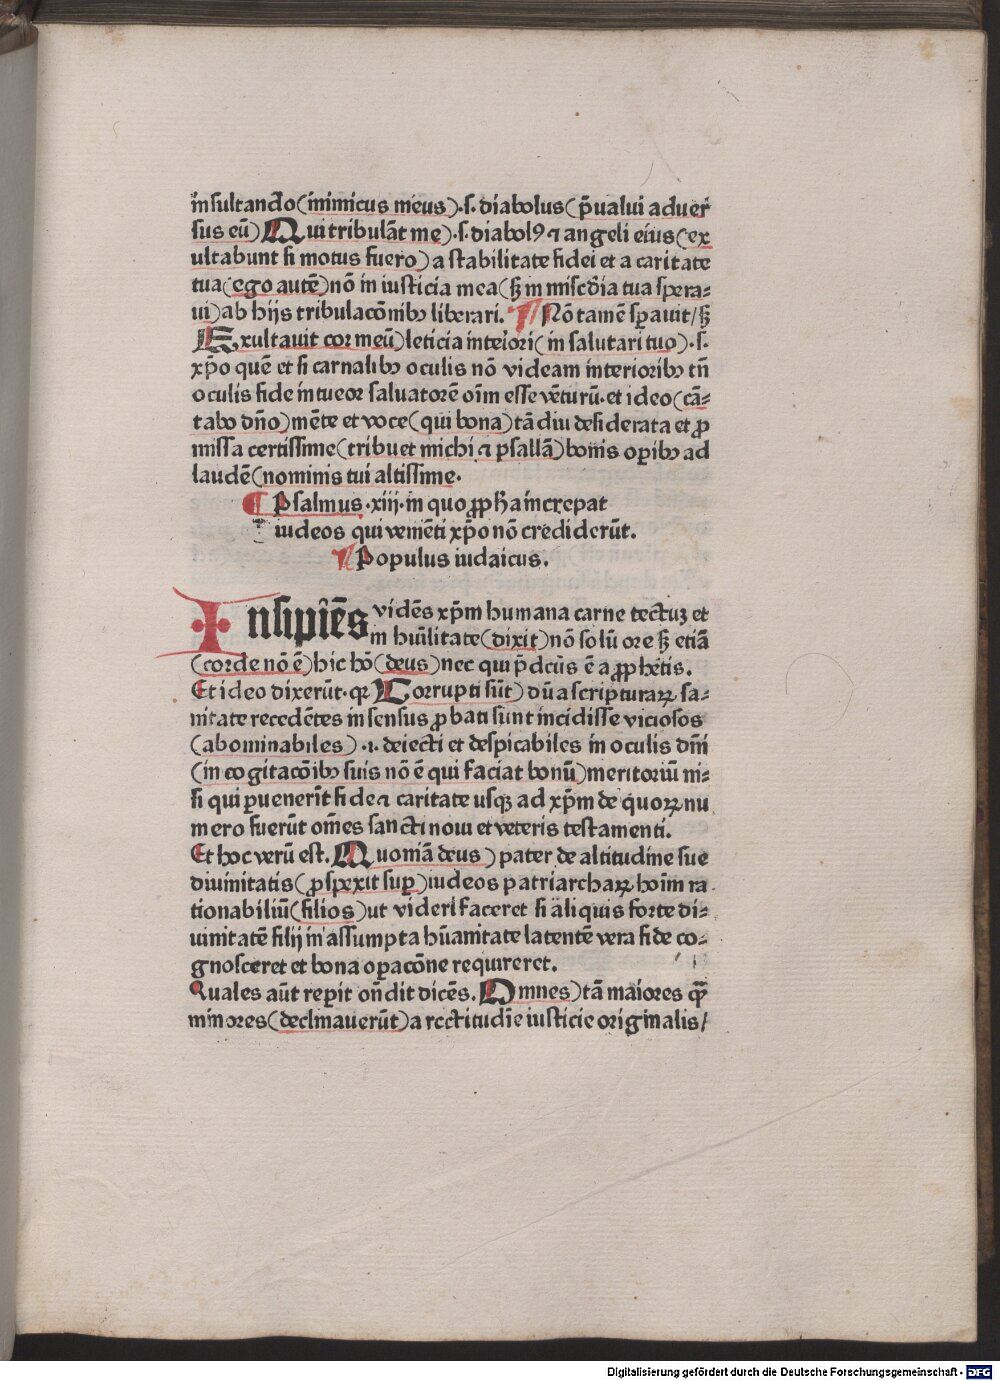 insultando(inimicus meus).s. diabolus(p̄ualui aduer
sus eū) Qui tribulāt me).s. diabolꝰ ⁊ angeli eius(ex
ultabunt si motus fuero) a stabilitate fidei et a caritate
tua(ego autē)nō in iusticia mea(sꝫ in misc̄dia tua spera⸗
ui)ab hijs tribulacōnibꝫ liberari. ¶ Nō tamē sꝑauit/sꝫ
Exultauit cor meū)leticia interiori(in salutari tuo).s.
xp̄o quē et si carnalibꝫ oculis nō videam interioribꝫ tn̄
oculis fide intueor saluatorē oīm esse vēturū. et ideo(cā⸗
tabo dn̄o)mēte et voce(qui bona)tā diu desiderata et ꝓ
missa certissime(tribuet michi ⁊ psallā)bonis oꝑibꝫ ad
laudē(nominis tui altissime.
¶ Psalmus .xiij. in quo ꝓpħa increpat
iudeos qui veniēti xp̄o nō crediderūt.
¶ Populus iudaicus.
Insipiēs vidēs xp̄m humana carne tectuꝫ et
in hūilitate(dixit)nō solū ore sꝫ etiā
(corde nō ē)hic hō(deus)nec qui p̄dcūs ē a ꝓphetis.
Et ideo dixerūt. qꝛ Corrupti sūt) dū a scripturaꝝ sa⸗
nitate recedētes in sensus ꝓbati sunt incidisse viciosos
(abominabiles) .i. deiecti et despicabiles in oculis dn̄i
(in cogitacōibꝫ suis nō ē qui faciat bonū)meritoriū ni⸗
si qui ꝑuenerīt fide ⁊ caritate usqꝫ ad xp̄m de quoꝝ nu
mero fuerūt om̄es sancti noui et veteris testamenti.
Et hoc verū est. Quoniā deus) pater de altitudine sue
diuinitatis(ꝓspexit suꝑ)iudeos patriarchaꝝ hoīm ra
tionabiliū(filios)ut videri faceret si aliquis forte di⸗
uinitatē filij in assumpta hūanitate latentē vera fide co⸗
gnosceret et bona oꝑacōne requireret.
Quales aūt reꝑit on̄dit dicēs. Omnes)tā maiores qꝫ̄
minores(declinauerūt)a rectitudīe iusticie originalis/
Digitalisierung gefördert durch die Deutsche Forschungsgemeinschaft - DFG